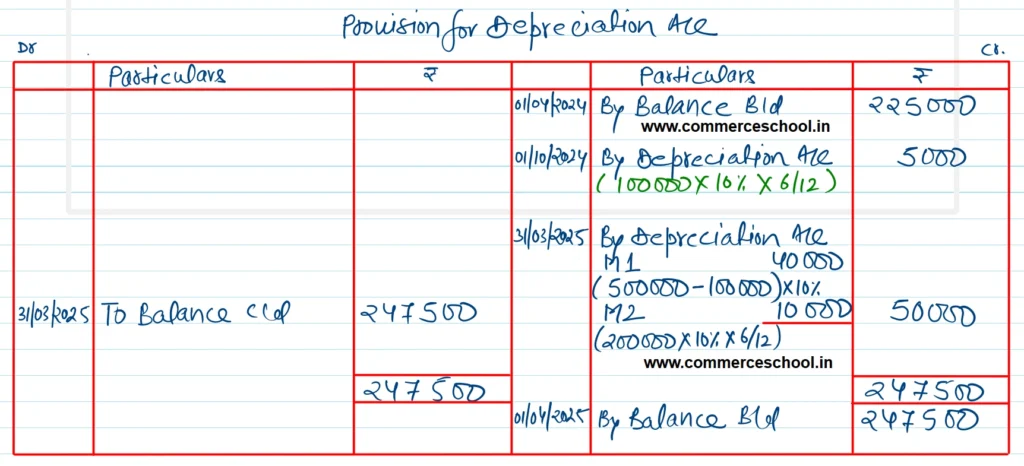 Provision for Depreciation A/c
Dr
Cr.
Particulars ₹ Particulars ₹
01/04/2024 By Balance B/d 225000
www.commerceschool.in
01/10/2024 By Depreciation A/c 5000
(100000 X 10% X 6/12)
31/03/2025 By Depreciation A/c
M1 40000
(500000-100000) X10%
31/03/2025 To Balance C/d 247500 M2 10000 50000
(200000X10% X 6/12)
www.commerceschool.in
247500 247500
01/04/2025 By Balance B/d 247500